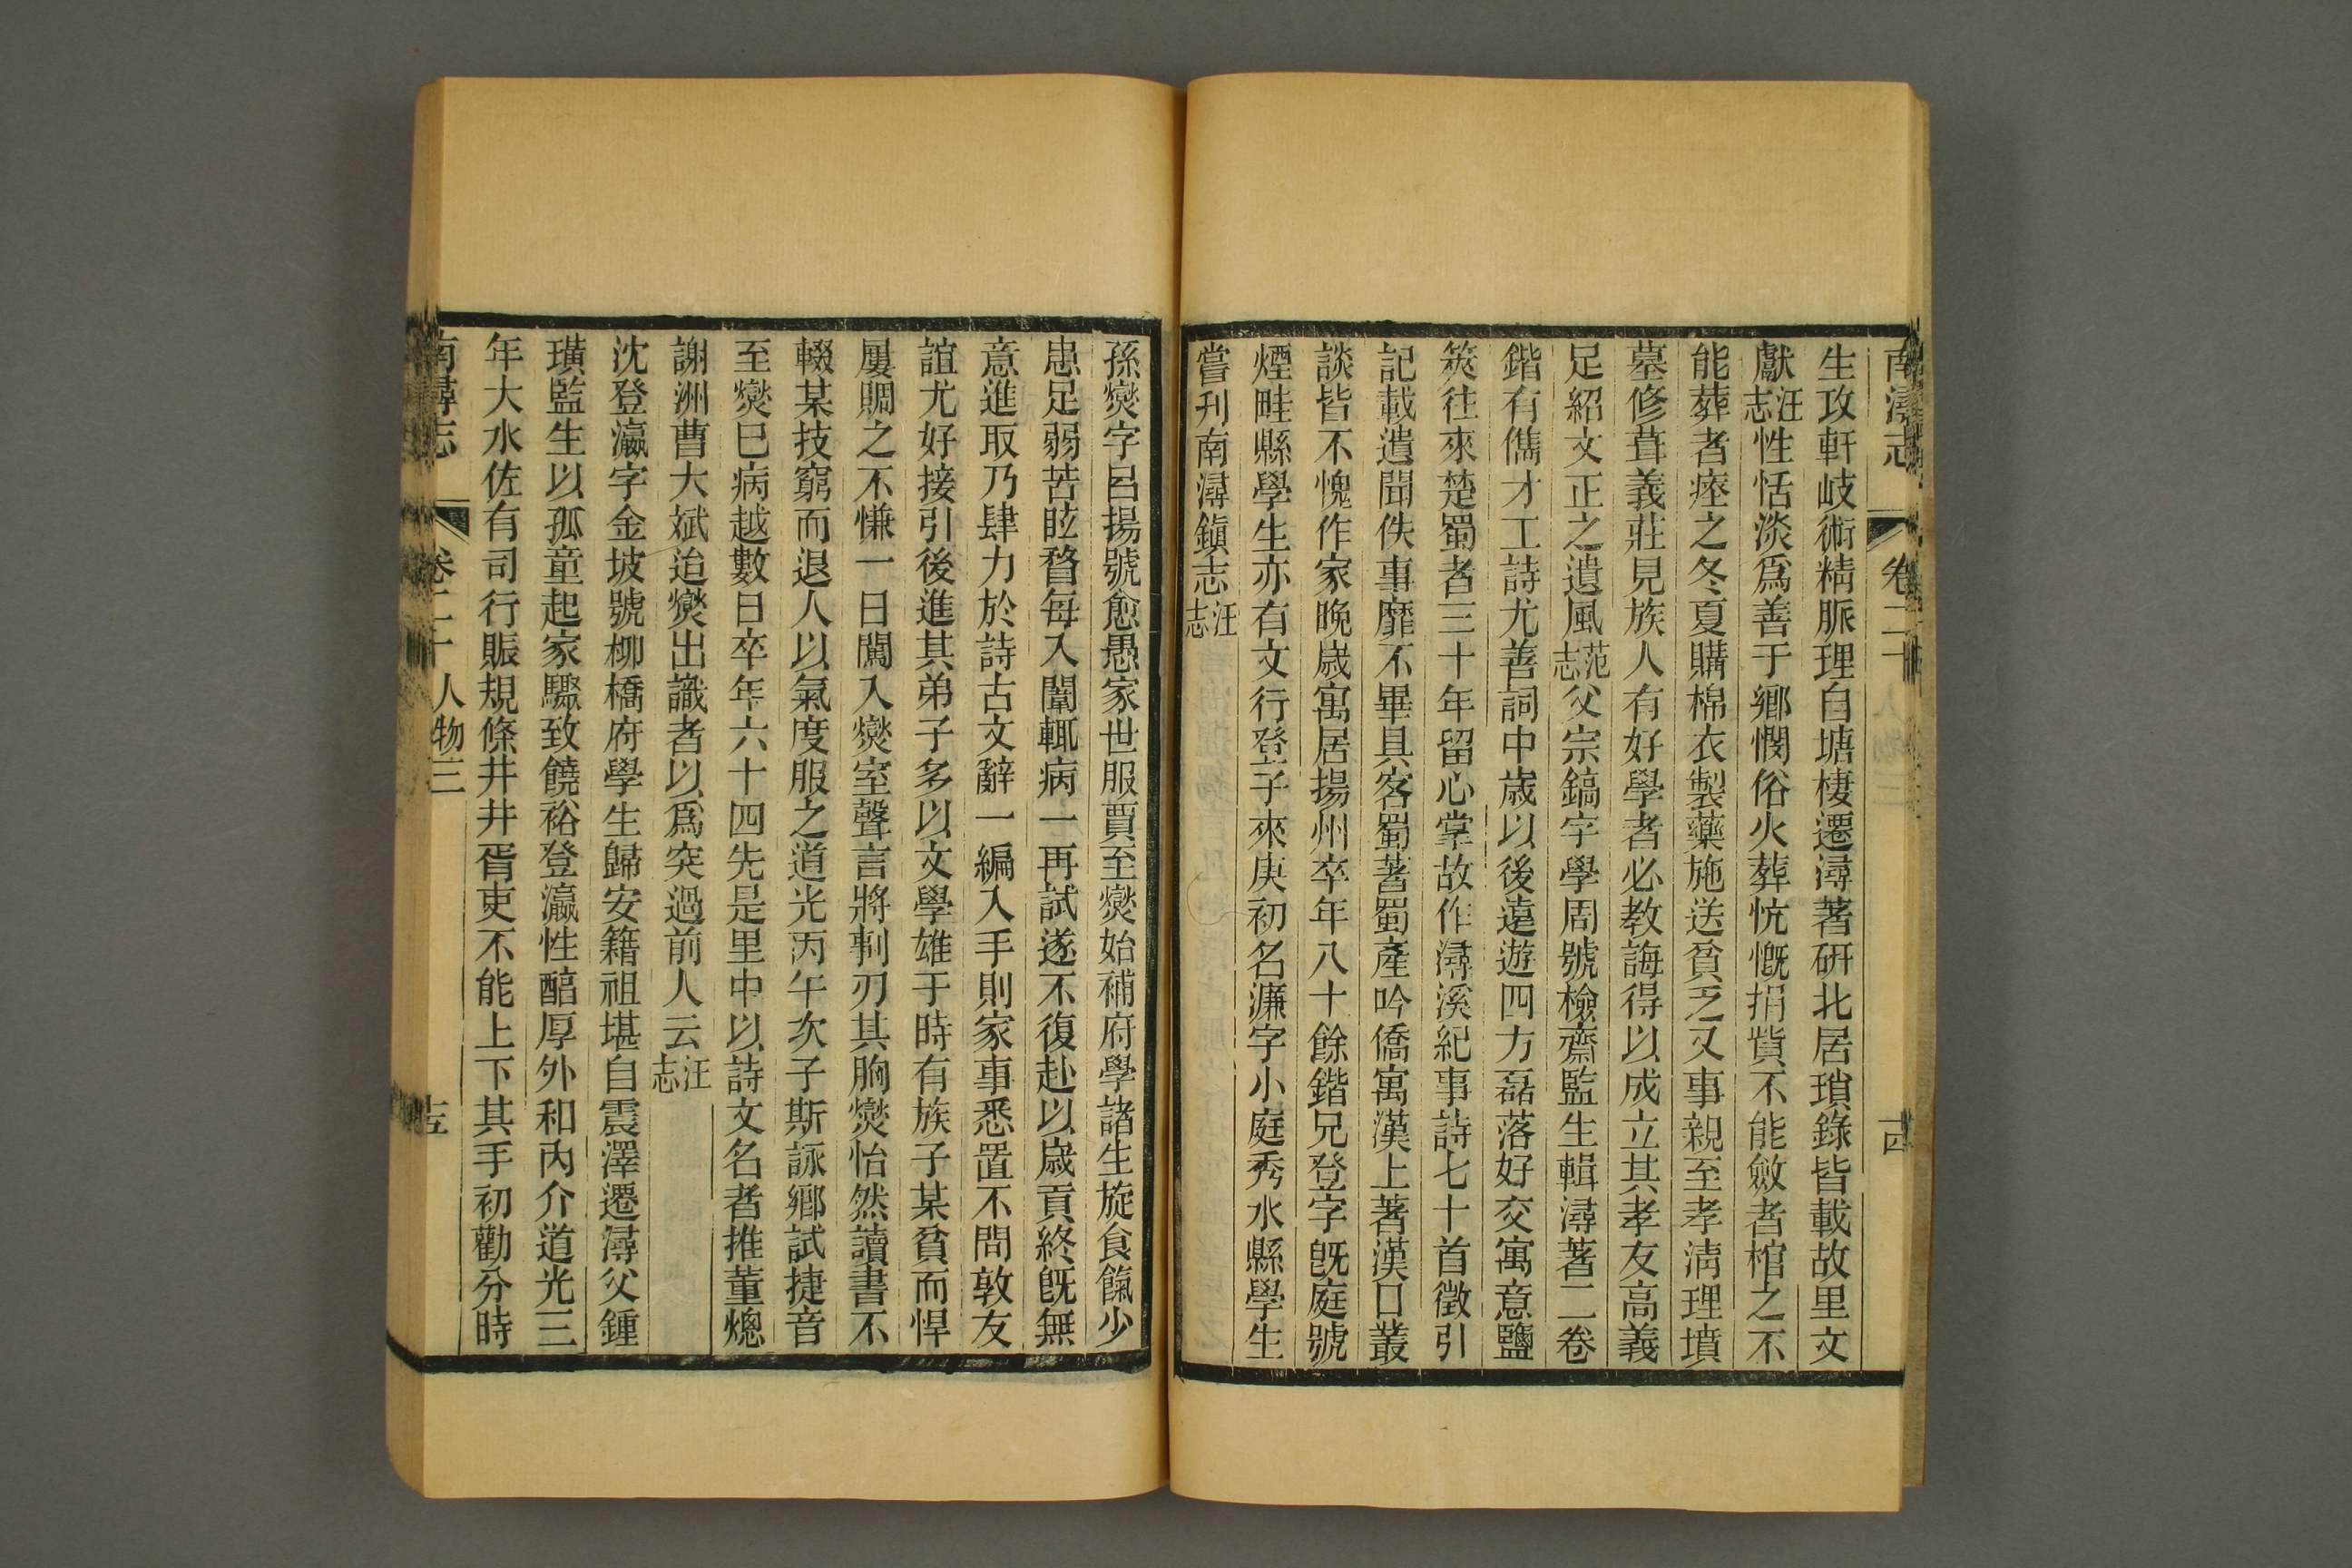 南潯志 卷二十 十四
生攻軒岐術精脈理自塘棲遷潯著研北居瑣錄皆載故里文
獻汪志性恬淡爲善于鄉憫俗火葬忼慨捐貲不能斂者棺之不
能葬者瘞之冬夏購棉衣製藥施送貧乏又事親至孝淸理墳
墓修葺義莊見族人有好學者必敎誨得以成立其孝友高義
足紹文正之遺風范志父宗鎬字學周號檢齋監生輯潯著二卷
鍇有儁才工詩尤善詞中歲以後遠遊四方磊落好交寓意鹽
筴往來楚蜀者三十年留心掌故作潯溪紀事詩七十首徵引
記載遺聞佚事靡不畢具客蜀著蜀產吟僑寓漢上著漢口叢
談皆不愧作家晚歲寓居揚州卒年八十餘鍇兄登字旣庭號
煙畦縣學生亦有文行登子來庚初名濂字小庭秀水縣學生
嘗刊南潯鎭志汪志
孫爕字呂揚號愈愚家世服賈至爕始補府學諸生旋食餼少
患足弱苦眩瞀每入闈輒病一再試遂不復赴以歲貢終旣無
意進取乃肆力於詩古文辭一編入手則家事悉置不問敦友
誼尤好接引後進其弟子多以文學雄于時有族子某貧而悍
屢賙之不慊一日闖入爕室聲言將剚刃其胸爕怡然讀書不
輟某技窮而退人以氣度服之道光丙午次子斯詠鄉試捷音
至爕已病越數日卒年六十四先是里中以詩文名者推董熜
謝洲曹大斌迨爕出識者以爲突過前人云汪志
沈登瀛字金坡號柳橋府學生歸安籍祖堪自震澤遷潯父鍾
璜監生以孤童起家驟致饒裕登瀛性醕厚外和內介道光三
年大水佐有司行賑規條井井胥吏不能上下其手初勸分時
南潯志 卷二十 人物三 十五